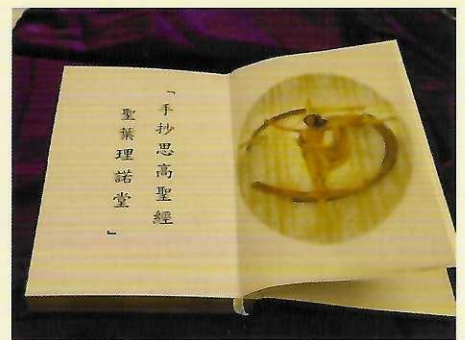 「手抄思高聖經
聖葉理諾堂」